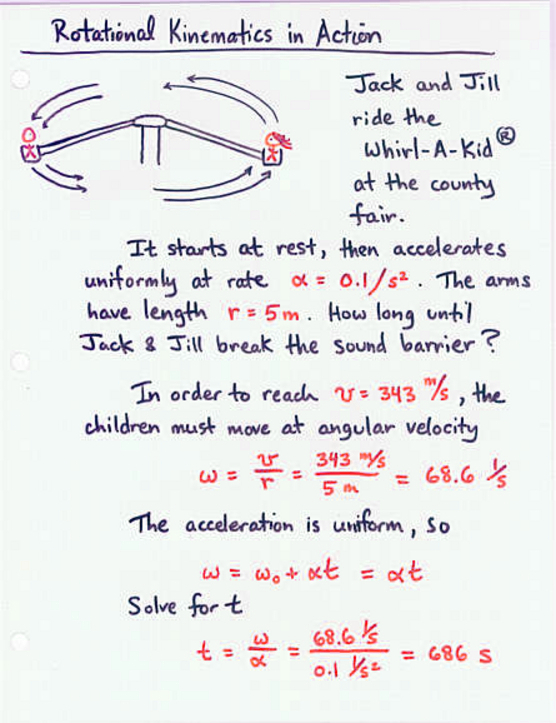 Rotational Kinematics in Action
Jack and Jill
ride the
Whirl-A-Kid®
at the county
fair.
It starts at rest, then accelerates
uniformly at rate α = 0.1/s². The arms
have length r = 5m. How long until
Jack & Jill break the sound barrier?
In order to reach v = 343 m/s, the
children must move at angular velocity
ω = v/r = 343 m/s / 5 m = 68.6 1/s
The acceleration is uniform, so
ω = ω₀ + αt = αt
Solve for t
t = ω/α = 68.6 1/s / 0.1 1/s² = 686 s